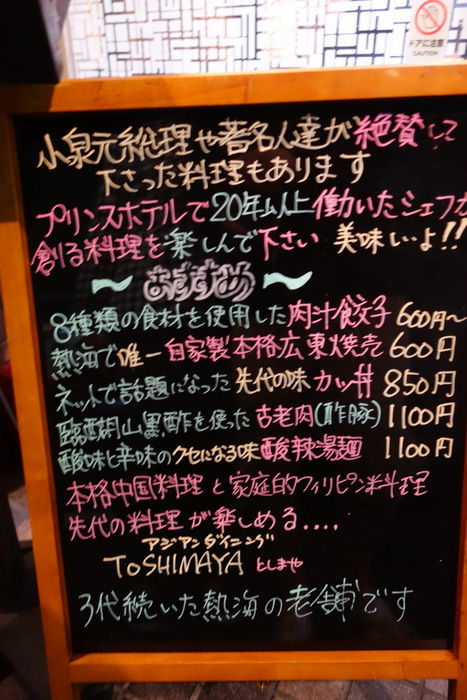 ドアに注意
CAUTION
小泉元総理や著名人達が絶賛して
下さった料理もあります
プリンスホテルで20年以上働いたシェフが
創る料理を楽しんで下さい 美味いよ!!
〜おすすめ〜
8種類の食材を使用した肉汁餃子 600円〜
熱海で唯一自家製本格広東焼売 600円
ネットで話題になった先代の味カツ丼 850円
臨醐山黒酢を使った古老肉(酢豚) 1100円
酸味と辛味のクセになる味酸辣湯麺 1100円
本格中国料理と家庭的フィリピン料理
先代の料理が楽しめる....
アジアンダイニング
ToSHIMAYA としまや
3代続いた熱海の老舗です